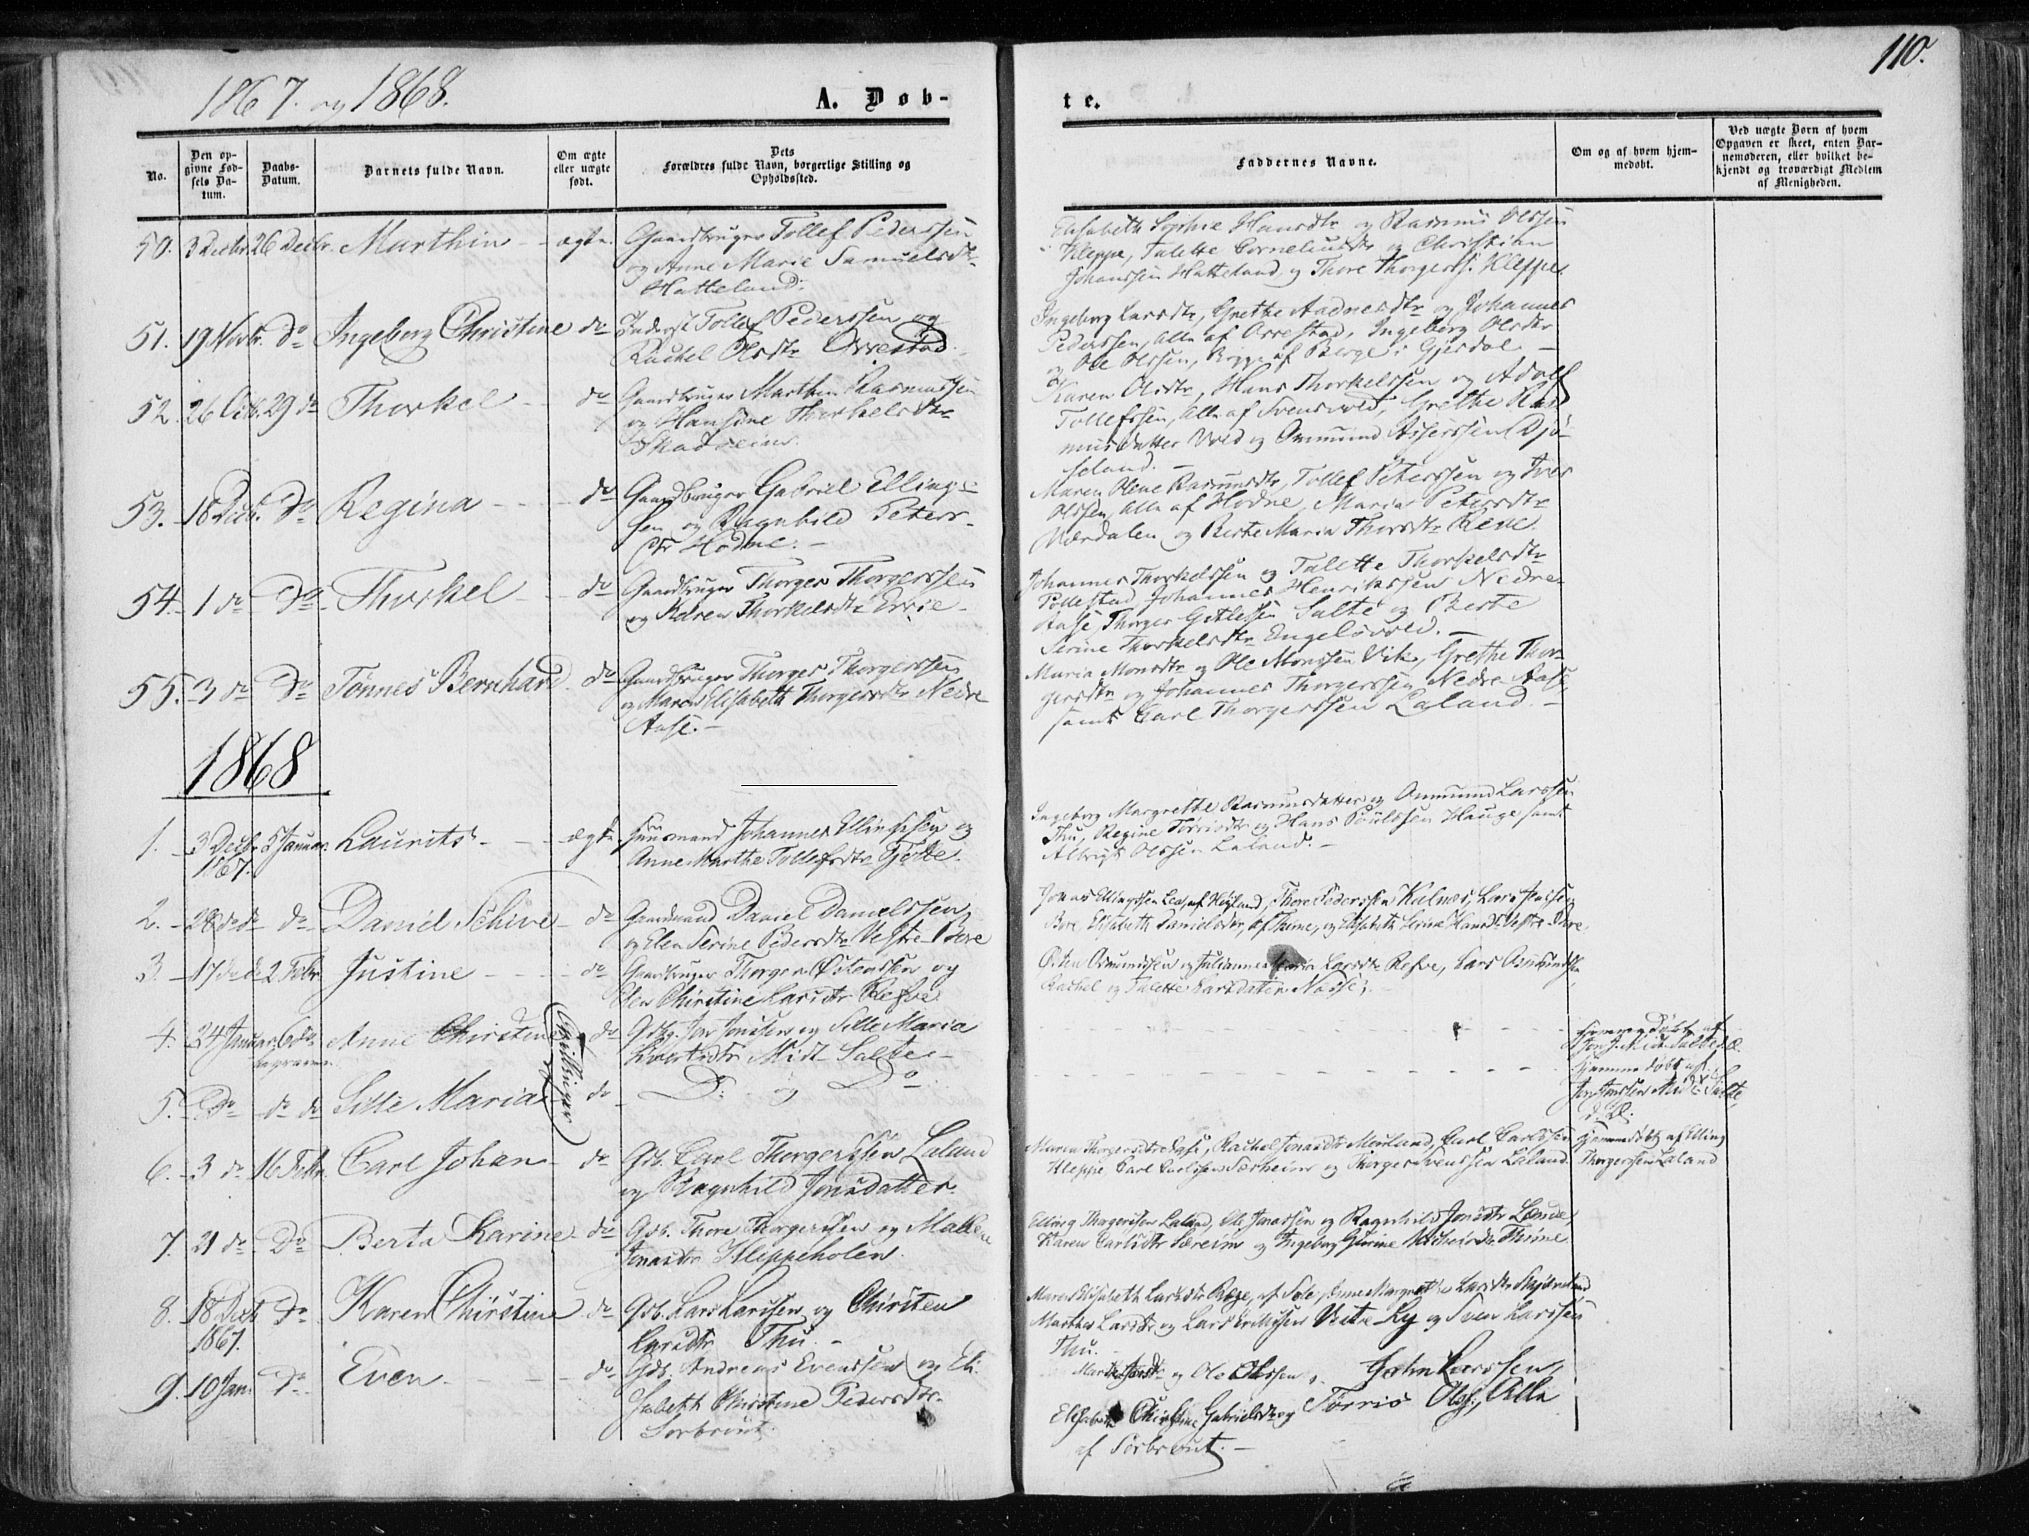 1867. og 1868.
A. Døb-
te.
110.
No.
Den op-
givne Fød-
sels Da-
tum.
Daabs-
Datum.
Barnets fulde Navn.
Om ægte
eller uægte
født.
Dets
Forældres fulde Navn, borgerlige Stilling og
Opholdssted.
Faddernes Navne.
Om og af hvem hjem-
medøbt.
Ved uægte Børn af hvem
Opgaven er skeet, enten Bar-
nemoderen, eller hvilket be-
kjendt og troværdigt Medlem
af Menigheden.
50. 3 Decbr. 26 Decbr. Marthin ægte. Gaardbruger Tollef Pederssen
og Anne Marie Samuelsdtr
Hatteland.
Elisabeth Sophie Hansdtr og Rasmus Olssen
Kleppe, Talette Corneliusdtr og Christian
Johanssen Hatteland, og Thore Thorgerss. Kleppe
51. 19 Novbr. do Ingeborg Christine do Inderst Tollef Pederssen og
Rachel Olsdtr Orrestad.
Ingeborg Larsdtr, Grethe Aadnesdtr og Johannes
Pederssen, alle af Orrestad, Ingeborg Olsdtr
og Ole Olssen, Begge af Berge i Gjesdal.
52. 26 Octb. 29 do Thorkel do Gaardbruger Marthin Rasmussen
og Hansine Thorkelsdtr
Skadseim.
Karen Olsdtr, Hans Thorkelssen og Adolf
Tollefssen, alle af Svensvold, Grethe Ras-
musdatter Vold og Osmund Asserssen Njø-
land.
53. 18 Decb. Do Regina do Gaardbruger Gabriel Elling-
sen og Ragnhild Peters-
dtr Hodne.
Maren Olene Rasmusdtr, Tollef Peterssen og Iver
Olssen, alle af Hodne, Maria Petersdtr
Nærdalen og Berte Maria Thorsdtr Reve
54. 1 do Do Thorkel do Gaardbruger Thorger Thorgerssen
og Karen Thorkelsdtr Ervie
Johannes Thorkelssen og Talette Thorkelsdtr
Pollestad, Johannes Henrikssen Nedre
Aase, Thorger Gitlessen Salte og Berte
Serine Thorkelsdtr Engelsvold.
55. 3 do Do Tønnes Bernhard do Gaardbruger Thorger Thorgerssen
og Maren Elisabeth Thorgersdtr Nedre
Aase.
Maria Monsdtr og Ole Monssen Vik, Grethe Thor-
gersdtr og Johannes Thorgerssen Nedre Aase,
samt Carl Thorgerssen Laland.
1868
1. 3 Decbr 1867. 5 Januar. Laurits ægte Huusmand Johannes Ellingssen og
Anne Marthe Tollefsdtr Tjøtte.
Ingeborg Margrethe Rasmusdatter og Osmund Larssen
Thu, Regine Tørrisdtr og Hans Poulssen Hauge samt
Albrigt Olssen Laland.
2. 28 do do do Daniel Schive do Gaardmand Daniel Danielssen
og Elen Serine Pedersdtr Vestre Bore
Jonas Ellingssen Lea af Høyland, Thore Pederssen Kalnes, Lars
Bore, Elisabeth Danielsdtr af Thime, og Elisabeth Serine Hansdtr Vestre Bore.
3. 17 do do 2 Febr Justine do Gaardbruger Thorger Østenssen og
Elen Christine Larsdtr Refve
Østen Osmundssen og Julianne Larsdtr Refve, Lars Osmundsen
Rachel og Talette Larsdatter Næsse,
4. 24 Januar 6 do Anne Christine do Gdbg. Jon Jonassen og Sille Maria
Midt Salte
Hjemmedøbt af
Jon J. Midt Salte
5. Do do do Sille Maria do D. og Do
(Tvillinger)
Hjemmedøbt af
Jon Jonssen Midt Salte
6. 3 do 16 Febr. Carl Johan do Gdb. Carl Thorgerssen Laland
og Ragnhild Jonsdatter
Maren Thorgersdtr Aase, Rachel Jonasdtr Mæland, Carl Carlssen
Kleppe, Carl Carlssen Særheim og Thorger Svenssen Laland.
Hjemmedøbt af Elling
Thorgerssen Laland
7. 21 do Do Berta Karine do Gdb. Thore Thorgerssen og Malene
Jonasdtr Kleppeholen.
Elling Thorgerssen Laland, Ole Jonassen og Ragnhild Jonsdtr Lende,
Karen Carlsdtr Særeim og Ingeborg Thime
8. 18 Decb 1867. Do Karen Christine do Gdb. Lars Larssen og Christen
Larsdtr Thu.
Maren Elisabeth Larsdtr Bøge, af Sole, Anne Margrethe Larsdtr
Marthe Larsdtr og Lars Erikssen Vestre Ly og Sven Larssen
Thu.
9. 10 Jan. Do Even do Gdb. Andreas Evenssen og Eli-
sabeth Christine Pedersdtr
Sorbrøut.
og Ole Olssen, John Larssen,
Elisabeth Christine Gabrielsdtr og Tørris Olss., Alle
af Sorbrøut.